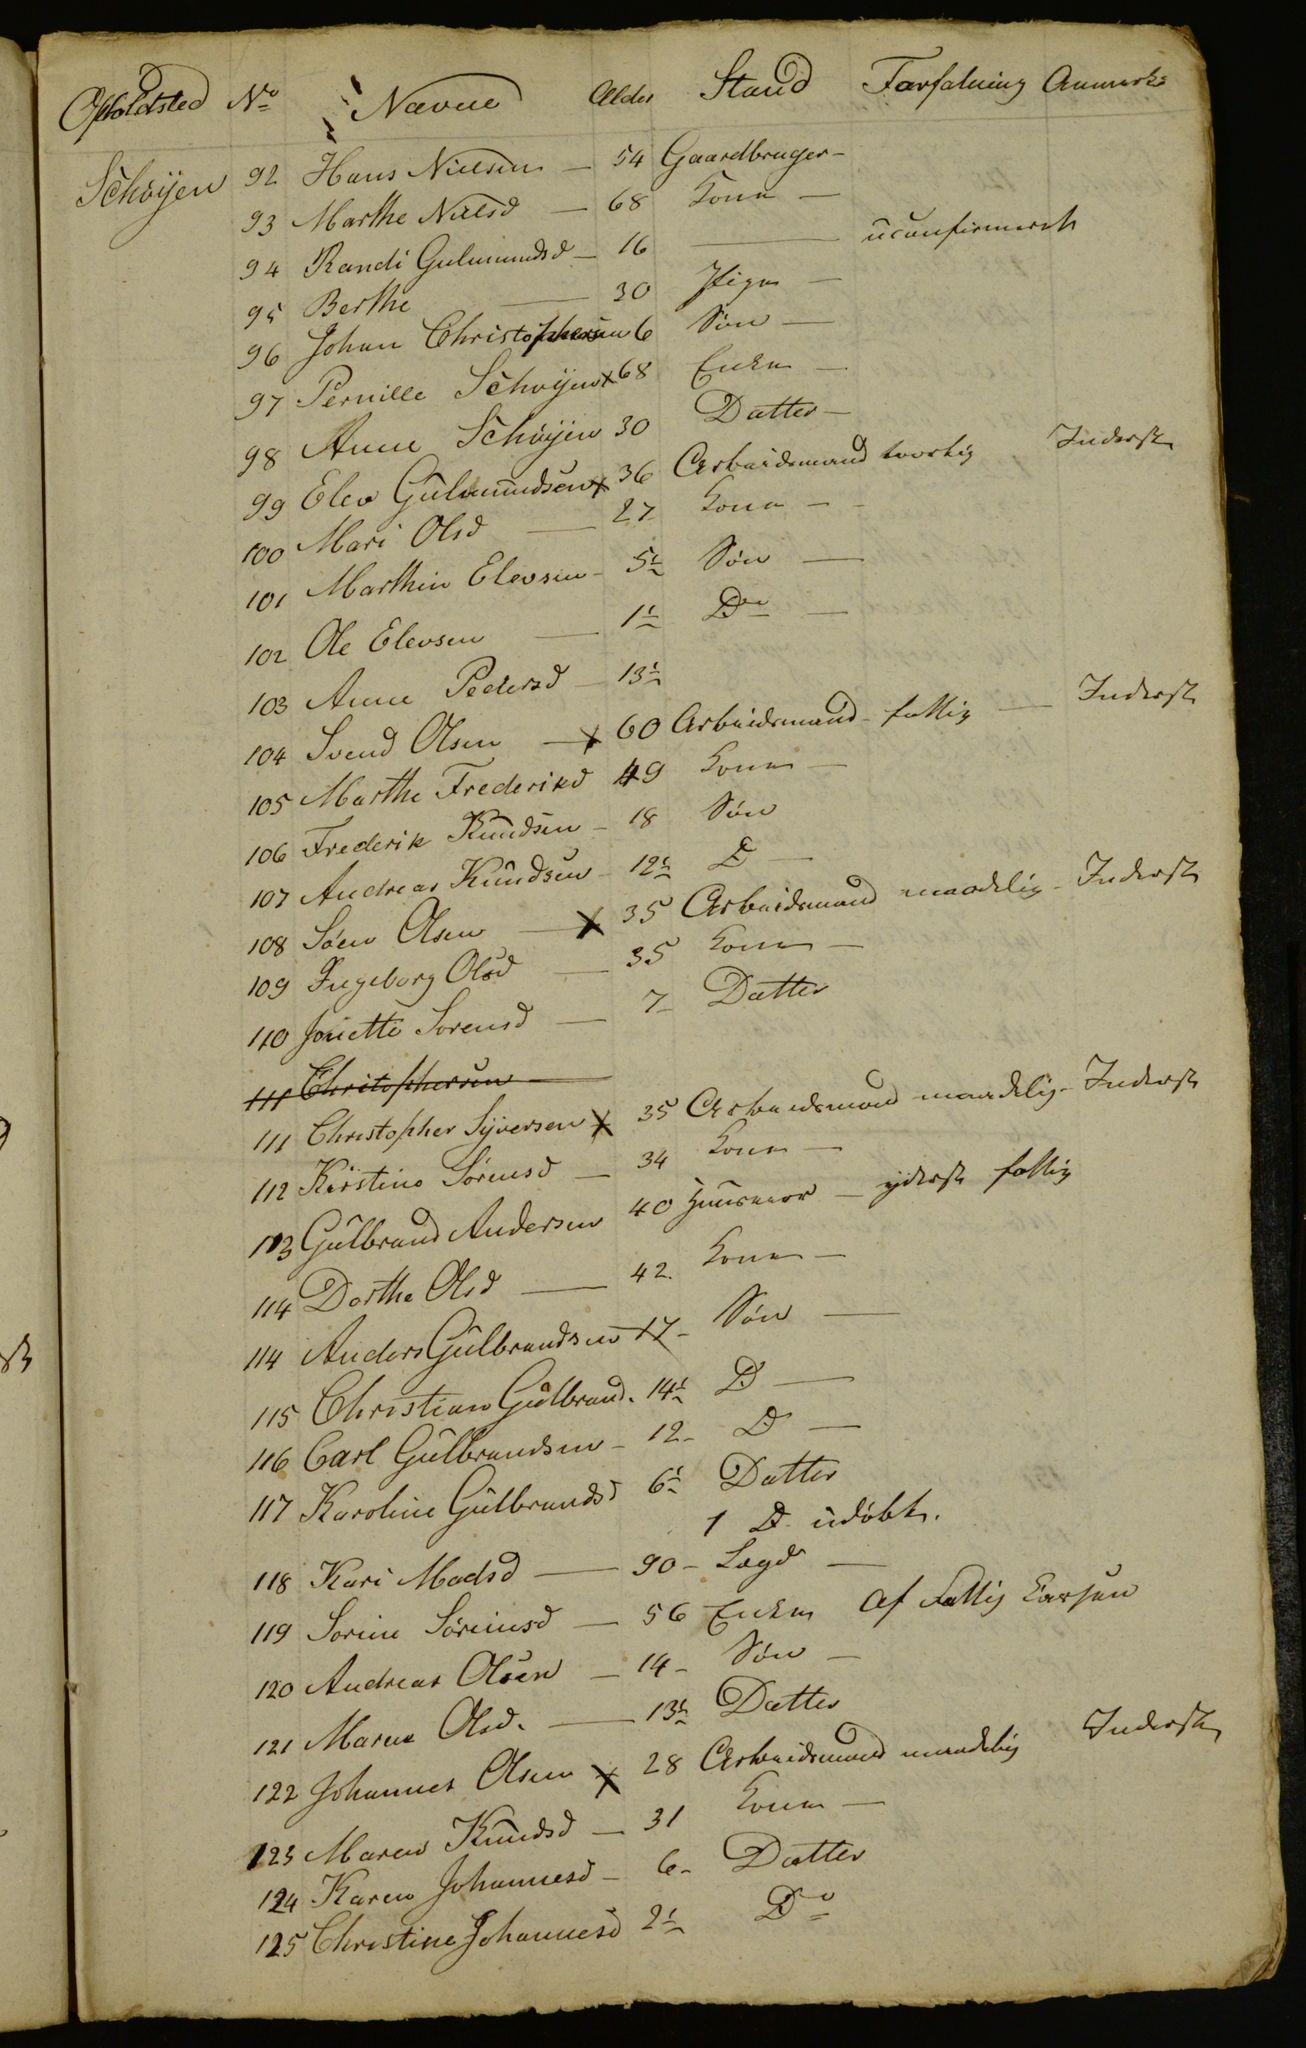 Opholdsted No Navne Alder Stand Forfatning Anmerk:
Schöÿen 92 Hans Nielsen — 54 Gaardbruger —
93 Marthe Nielsd — 68 Kone —
94 Randi Gulmundsd — 16 — uconfirmert
95 Berthe — 30 Pige —
96 Johan Christophersen 6 Søn —
97 Pernille Schöÿen x 68 Enke —
98 Anne Schöÿen 30 Datter —
99 Elev Gulmundsen x 36 Arbeidsmand Inderst
100 Mari Olsd — 27 Kone —
101 Marthin Elevsen — 5½ Søn —
102 Ole Elevsen — 1½ Do —
103 Anne Pedersd — 13½
104 Svend Olsen — x 60 Arbeidsmand — fattig — Inderst
105 Marthe Frederiksd 49 Kone —
106 Frederik Knudsen — 18 Søn
107 Andreas Knudsen — 12½ D —
108 Sóen Olsen — x 35 Arbeidsmand maadelig — Inderst
109 Ingeborg Olsd — 35 Kone —
110 Jonette Sorensd — 7 — Datter
111 Chritophersen —
111 Christopher Syversen x 35 Arbeidsmand maadelig — Inderst
112 Kirstine Sörensd — 34 Kone —
113 Gulbrand Andersen 40 Huusmand — yderst fattig
114 Dorthe Olsd — 42. Kone —
114 Anders Gulbrandsen 17 — Søn —
115 Christian Gulbrand. 14½ D —
116 Carl Gulbrandsen — 12 — D —
117 Karoline Gulbrandsd 6½ Datter
1 D. udøbt.
118 Kari Madsd — 90 — Lægd —
119 Sorine Sörensd — 56 Enke Af Fattig Cassen
120 Andreas Olsen — 14 — Søn —
121 Maren Olsd. — 13½ Datter
122 Johannes Olsen x 28 Arbeidsmand maadelig Inderst
123 Maren Knudsd — 31 Kone —
124 Karen Johannesd — 6 — Datter
125 Christine Johannesd 2½ Do